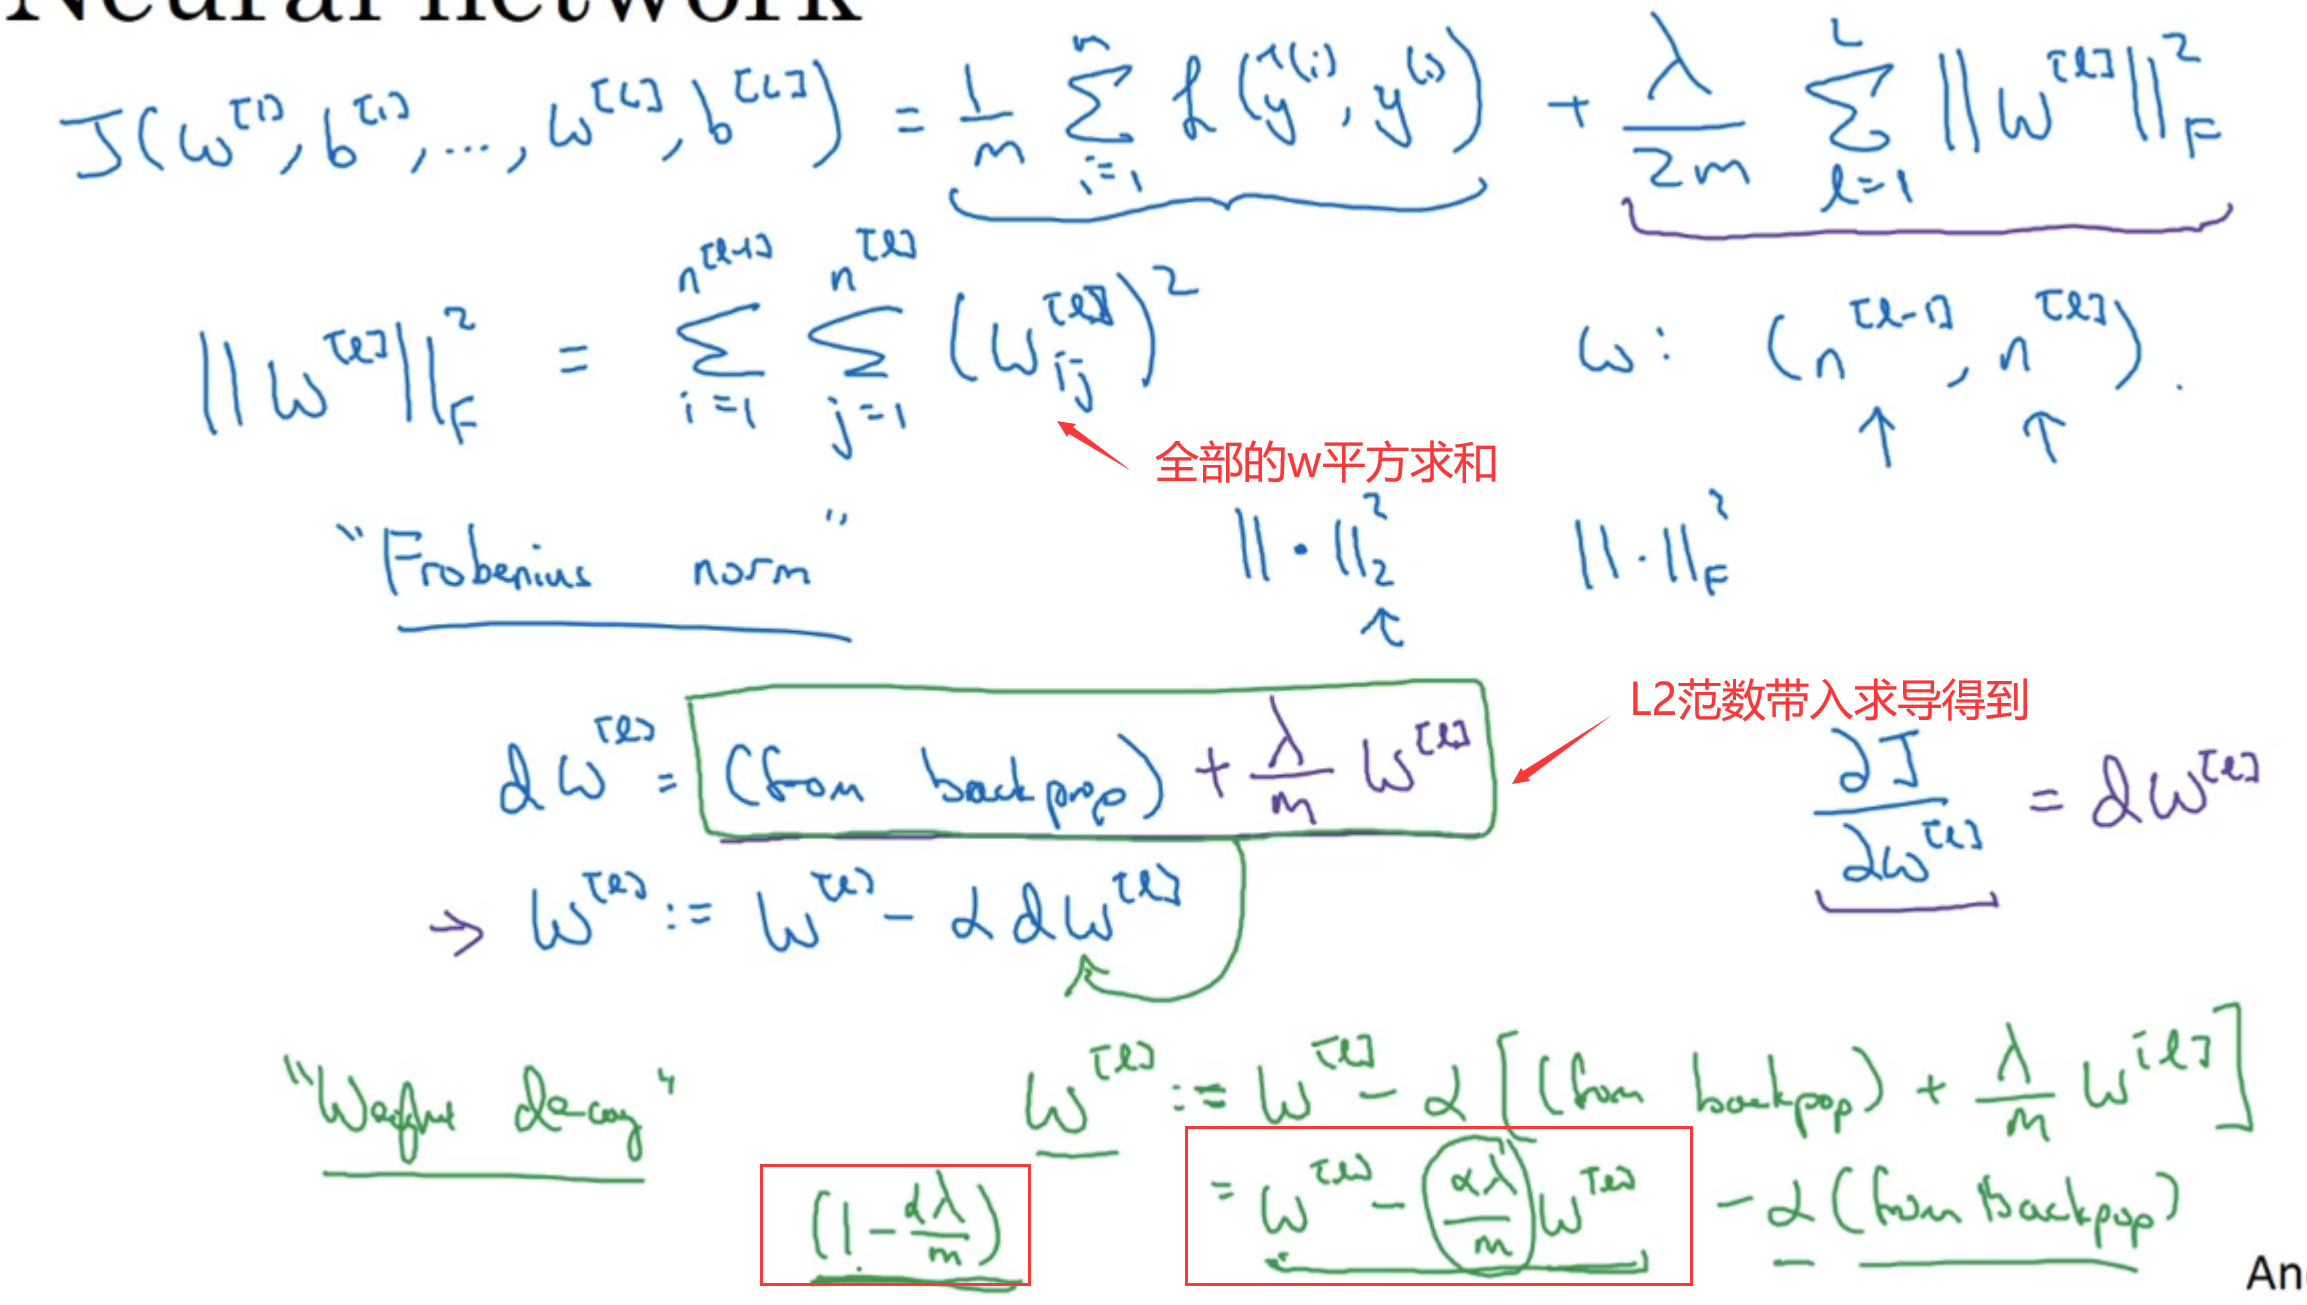 Neural network
J(w^[1], b^[1], ..., w^[L], b^[L]) = 1/m Σ_{i=1}^{m} ℒ(ŷ^(i), y^(i)) + λ/2m Σ_{l=1}^{L} ||w^[l]||_F^2
||w^[l]||_F^2 = Σ_{i=1}^{n^[l-1]} Σ_{j=1}^{n^[l]} (w_ij^[l])^2    w: (n^[l-1], n^[l]).
全部的w平方求和
"Frobenius norm"    ||·||_2^2    ||·||_F^2
L2范数带入求导得到
dw^[l] = (from backprop) + λ/m w^[l]    ∂J/∂w^[l] = dw^[l]
→ w^[l] := w^[l] - α dw^[l]
"Weight decay"    w^[l] := w^[l] - α[(from backprop) + λ/m w^[l]]
(1 - αλ/m)    = w^[l] - αλ/m w^[l] - α(from backprop)